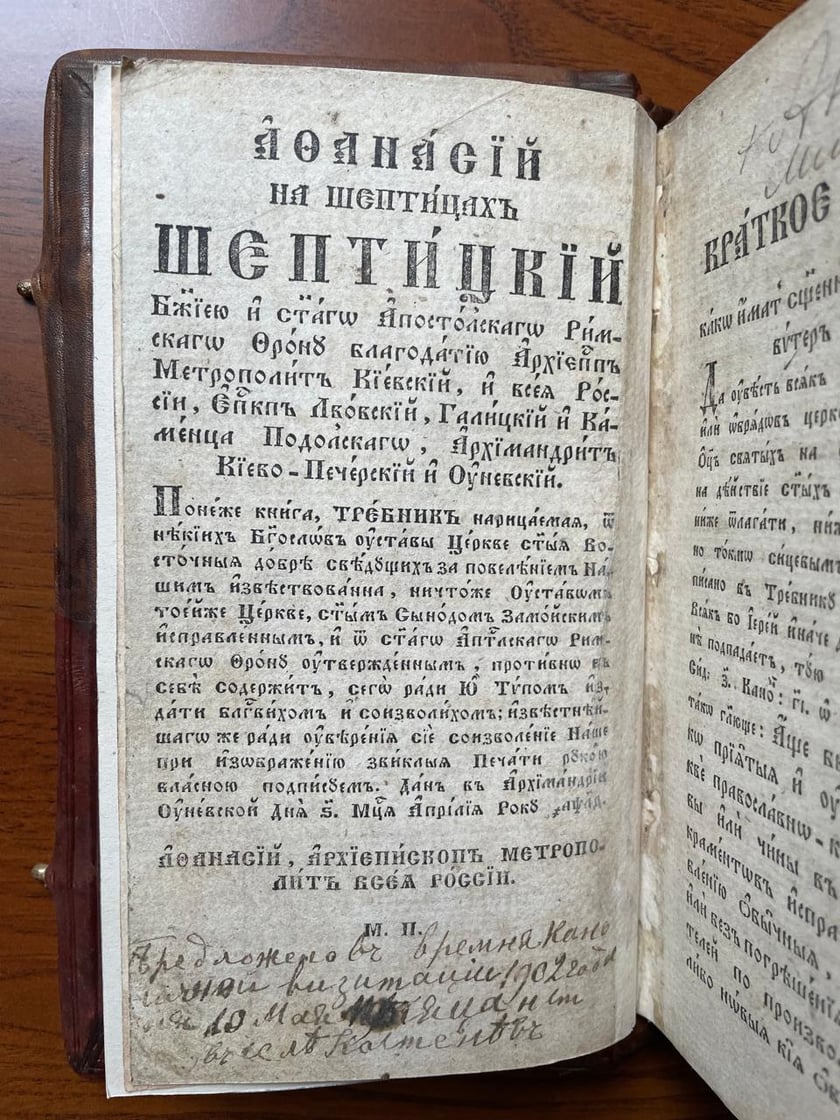 А҆ѲАНА́СЇЙ
НА ШЕПТИ́ЦАХЪ
ШЕПТИ́ЦКЇЙ
Бж҃їею и҆ ст҃а́гѡ А҆посто́лскагѡ Ри́м-
скагѡ Ѳро́нꙋ благода́тїю А҆рхїеп҃пъ
Митрополи́тъ Кі́евскїй, и҆ все́ѧ Рѡс-
сі́и, Е҆п҃кпъ Лво́вскїй, Га́лицкїй и҆ Ка-
ме́нца Подо́лскагѡ, А҆рхїмандри́тъ
Кі́ево-Пече́рскїй и҆ Оу҆не́вскїй.
Поне́же кни́га, ТРЕ́БНИКЪ нарица́емаѧ, ѿ
нѣ́кїихъ Бг҃осло́въ оу҆ста́вы Це́ркве ст҃ы́ѧ Во-
сто́чныѧ до́брѣ свѣ́дꙋщихъ за повелѣ́нїемъ На́-
шимъ и҆звѣ́ствованна, ничто́же Оу҆ста́вѡмъ
тое́йже Це́ркве, ст҃ы́мъ Сѵно́домъ Замо́йскимъ
и҆спра́вле́ннымъ, и҆ ѿ ст҃а́гѡ А҆пт҃лскагѡ Ри́м-
скагѡ Ѳро́нꙋ оу҆твержде́ннымъ, проти́внѡ въ
себѣ̀ содержи́тъ, сегѡ̀ ра́ди Ю҆̀ Тѵ́помъ и҆з-
да́ти блг҃ви́хомъ и҆ соизво́лихомъ; и҆звѣ́стнѣй-
шагѡ же ра́ди оу҆вѣ́ренїѧ сїѐ соизволе́нїе На́ше
при и҆зѡбраже́нїю звы́клыѧ Печа́ти рꙋко́ю
вла́сною подпи́сꙋемъ. Да́нъ въ А҆рхїмандрі́и
Оу҆не́вской Днѧ̀ ѕ҃. Мц҃а А҆прі́лїѧ Ро́кꙋ ҂аѱлд.
А҆ѲАНА́СЇЙ, А҆РХЇЕПІ́СКОПЪ МЕТРОПО-
ЛИ́ТЪ ВСЕ́Ѧ РО́ССЇИ.
М. П.
Предложено въ времня Кано
визитаціи 1902 года
10 Мая
въ селѣ
КРА́ТКОЕ
ка́кѡ и҆́мать
Да оу҆вѣ́сть всѧ́къ
и҆лѝ ѡ҆брѧ́дѡвъ
Ѻ҆ц҃ъ свѧты́хъ на
на дѣ́йствїе ст҃ы́хъ
ни́же ѿлага́ти,
но то́кмѡ си́цевымъ
пи́сано въ Тре́бникꙋ
Всѧ́къ бо І҆ере́й и҆на́че
не подпада́етъ,
та́кѡ гл҃юще: А҆́ще
кѡ прїѧ́тыѧ и҆
кве правосла́внѡ-
вы и҆лѝ чи́ны въ
краме́нтѡвъ
вле́нїю Ѻ҆бы́чныѧ,
и҆лѝ безъ погрѣше́нїѧ
те́лей по
ли́бо нѡ́выѧ кі́ѧ